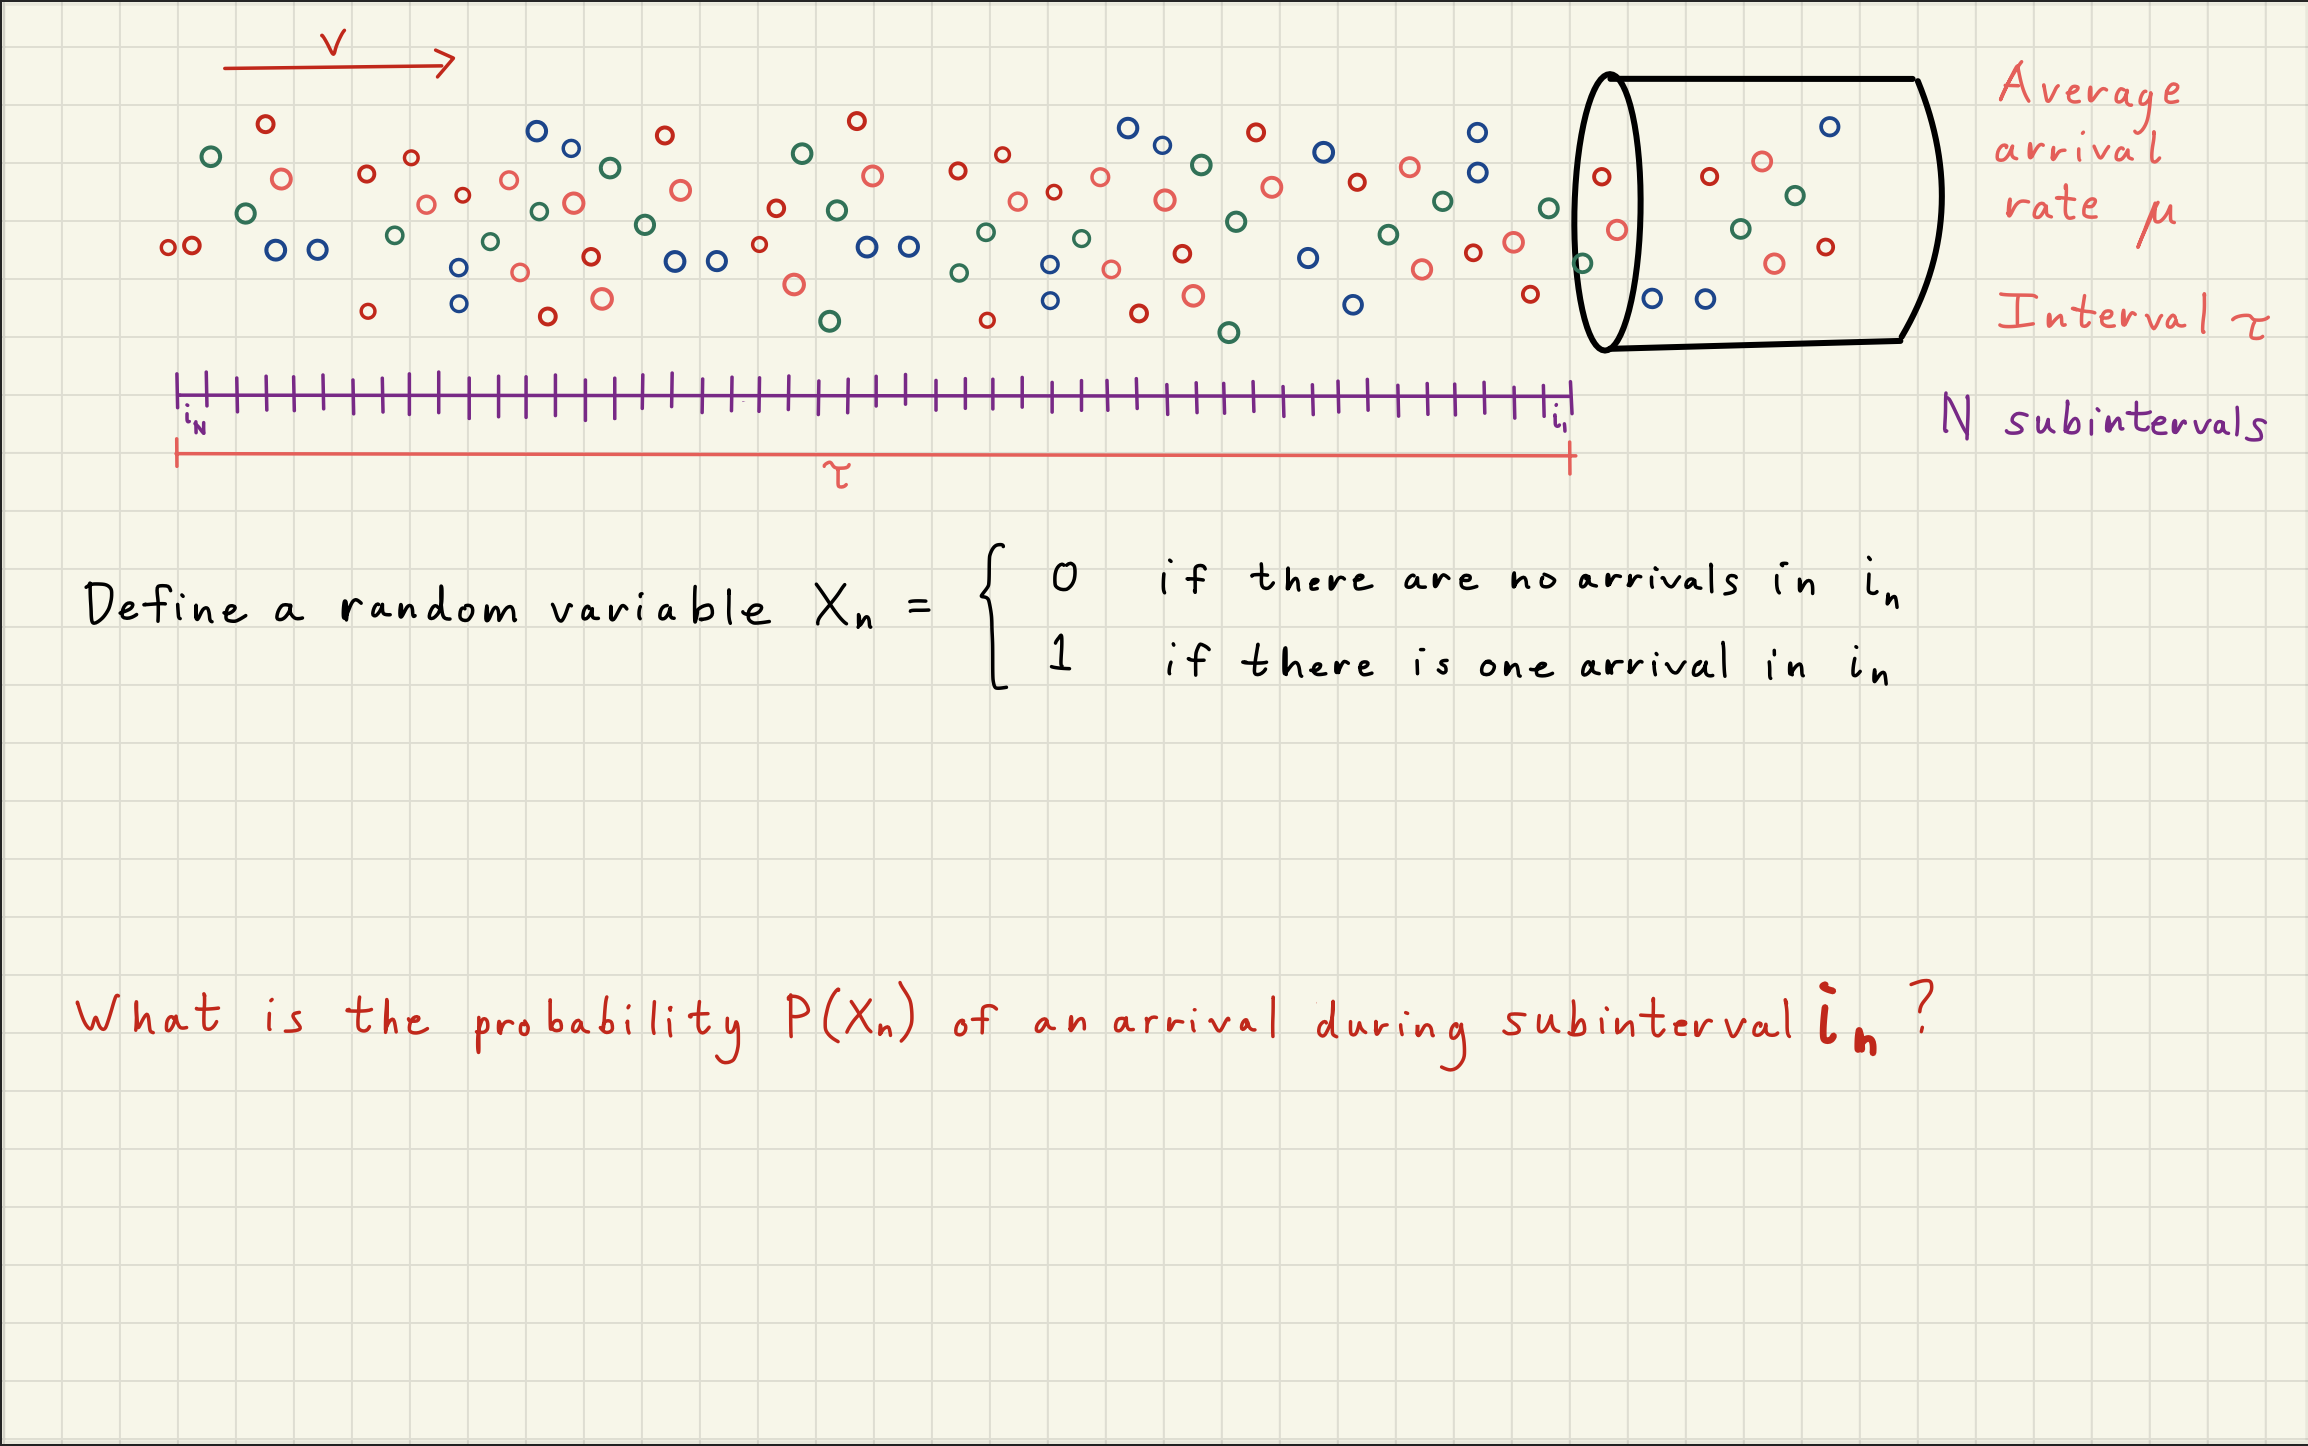 V
Average
arrival
rate μ
Interval τ
N subintervals
i_N
i_1
τ
Define a random variable X_n = { 0 if there are no arrivals in i_n
1 if there is one arrival in i_n
What is the probability P(X_n) of an arrival during subinterval i_n ?